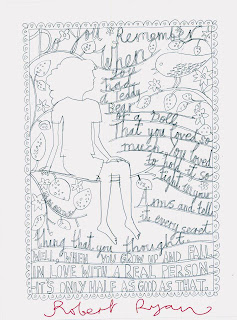 Do You Remember
When
you
had
a Teddy
Bear
or a Doll
That you Loved so
much, You Loved
to hold it so
tight in your
Arms and tell
it every secret
thing that you thought.
WELL, WHEN YOU GROW UP AND FALL
IN LOVE WITH A REAL PERSON
IT'S ONLY HALF AS GOOD AS THAT.
Robert Ryan